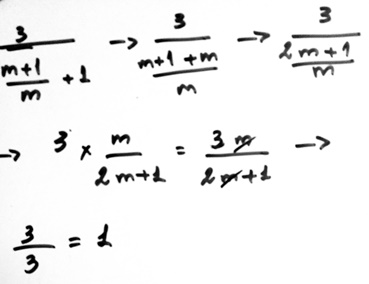 3/((m+1)/m + 1) → 3/((m+1+m)/m) → 3/((2m+1)/m)
→ 3 × m/(2m+1) = 3m/(2m+1) →
3/3 = 1